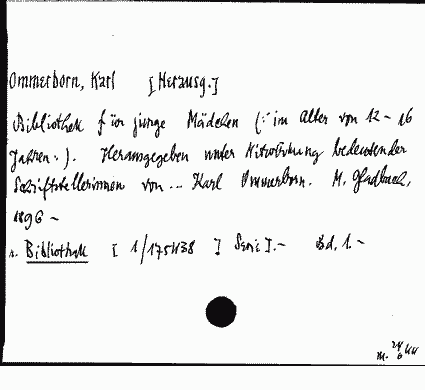 Ommerborn, Karl [Herausg.]
Bibliothek für junge Mädchen (: im Alter von 12 - 16
Jahren. :). Herausgegeben unter Mitwirkung bedeutender
Schriftstellerinnen von ... Karl Ommerborn. M. Gladbach,
1896 -
s. Bibliothek [ 1/175438 ] Serie I. - Bd. 1. -